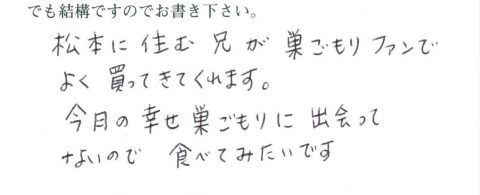 でも結構ですのでお書き下さい。
松本に住む兄が巣ごもりファンで
よく買ってきてくれます。
今月の幸せ巣ごもりに出会って
ないので 食べてみたいです